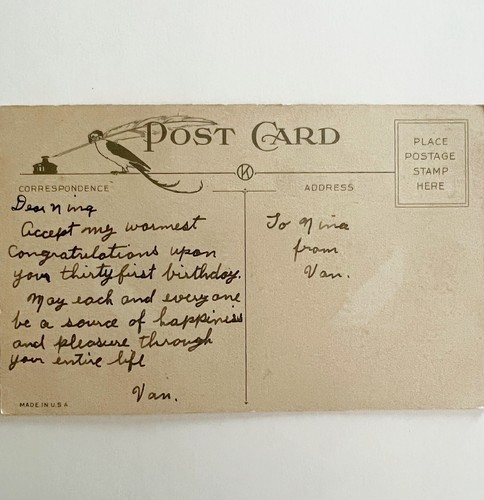 POST CARD
PLACE
POSTAGE
STAMP
HERE
K
CORRESPONDENCE
ADDRESS
Dear Nina
Accept my warmest
Congratulations upon
your thirty first birthday.
May each and everyone
be a source of happiness
and pleasure through
your entire life
Van.
To Nina
from
Van.
MADE IN U.S.A.